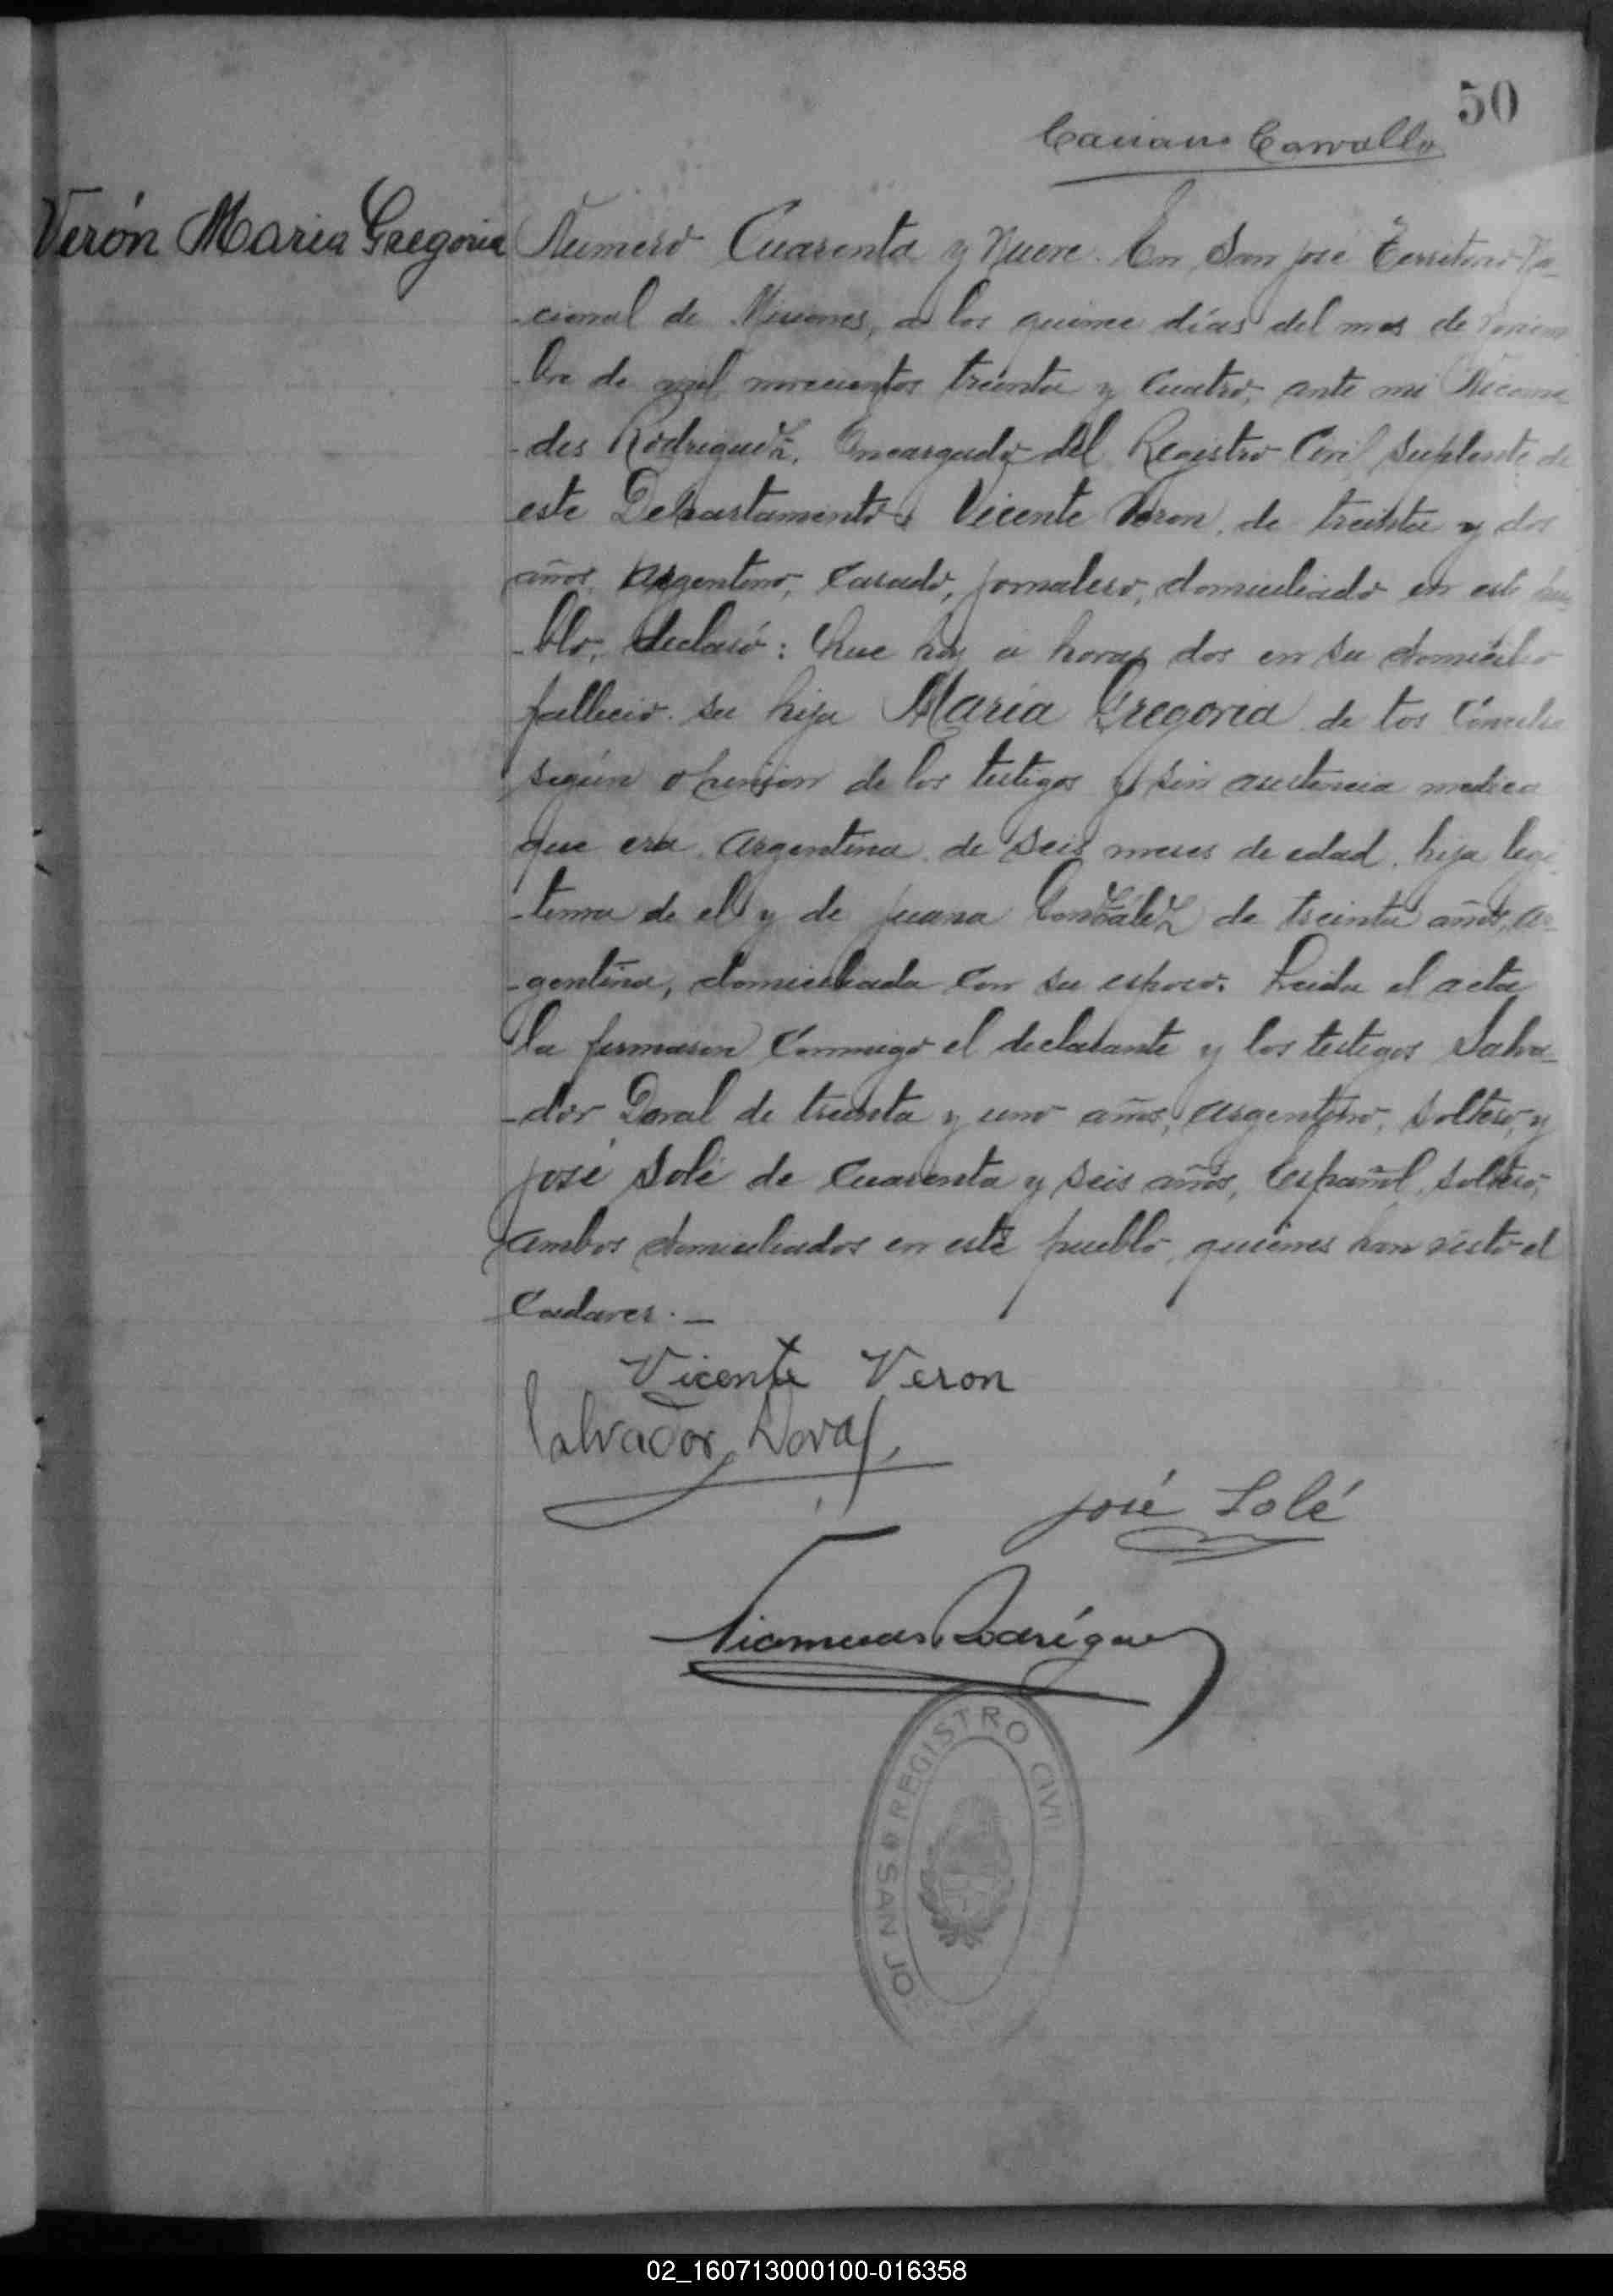 50
Carvallo
Verón Maria Gregoria
Número Cuarenta y Nueve. En San José Territorio Na-
-cional de Misiones, a los quince días del mes de Noviem
-bre de mil novecientos treinta y cuatro, ante mi Nicome
-des Rodriguez, Encargado del Registro Civil Suplente de
este Departamento, Vicente Veron, de treinta y dos
años, Argentino, Casado, jornalero, domiciliado en este pue
-blo, declaró: Que hoy a horas dos en su domicilio
fallecio su hija María Gregoria de tos Convulsa
según opinion de los testigos y sin asistencia medica
que era Argentina de seis meses de edad, hija legi
-tima de el y de Juana González de treinta años, ar-
-gentina, domiciliada con su esposo. Leida el acta
la firmaron conmigo el declarante y los testigos Salva-
-dor Doval de treinta y uno años, argentino, soltero, y
José Solé de Cuarenta y seis años, Español, soltero,
ambos domiciliados en este pueblo, quienes han visto el
Cadaver. —
Vicente Veron
Salvador Doval
José Solé
Nicomedes Rodríguez
REGISTRO CIVIL
SAN JO
02_160713000100-016358